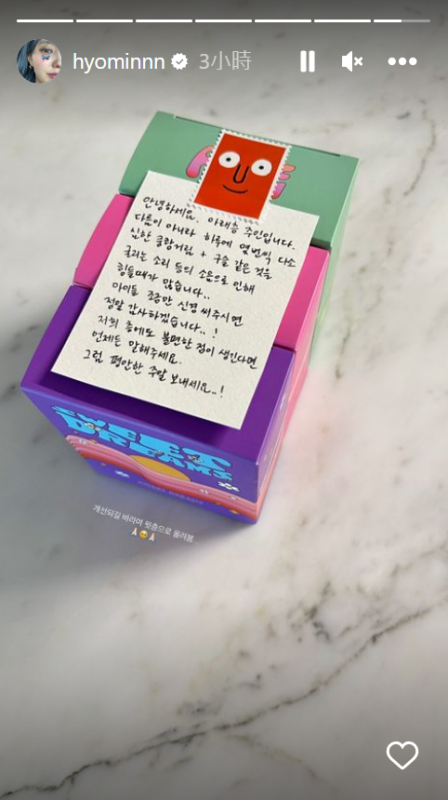 hyominnn
3小時
안녕하세요. 아래층 주인입니다.
다름이 아니라 하루에 몇번씩 다소
심한 쿵쾅거림 + 구슬 같은 것을
굴리는 소리 등의 소음으로 인해
힘들때가 많습니다..
아이들 조금만 신경 써주시면
정말 감사하겠습니다..!
저희 층에도 불편한 점이 생긴다면
언제든 말해주세요.
그럼 평안한 주말 보내세요..!
SWEET
DREAMS
개선되길 바라며 윗층으로 올려봄